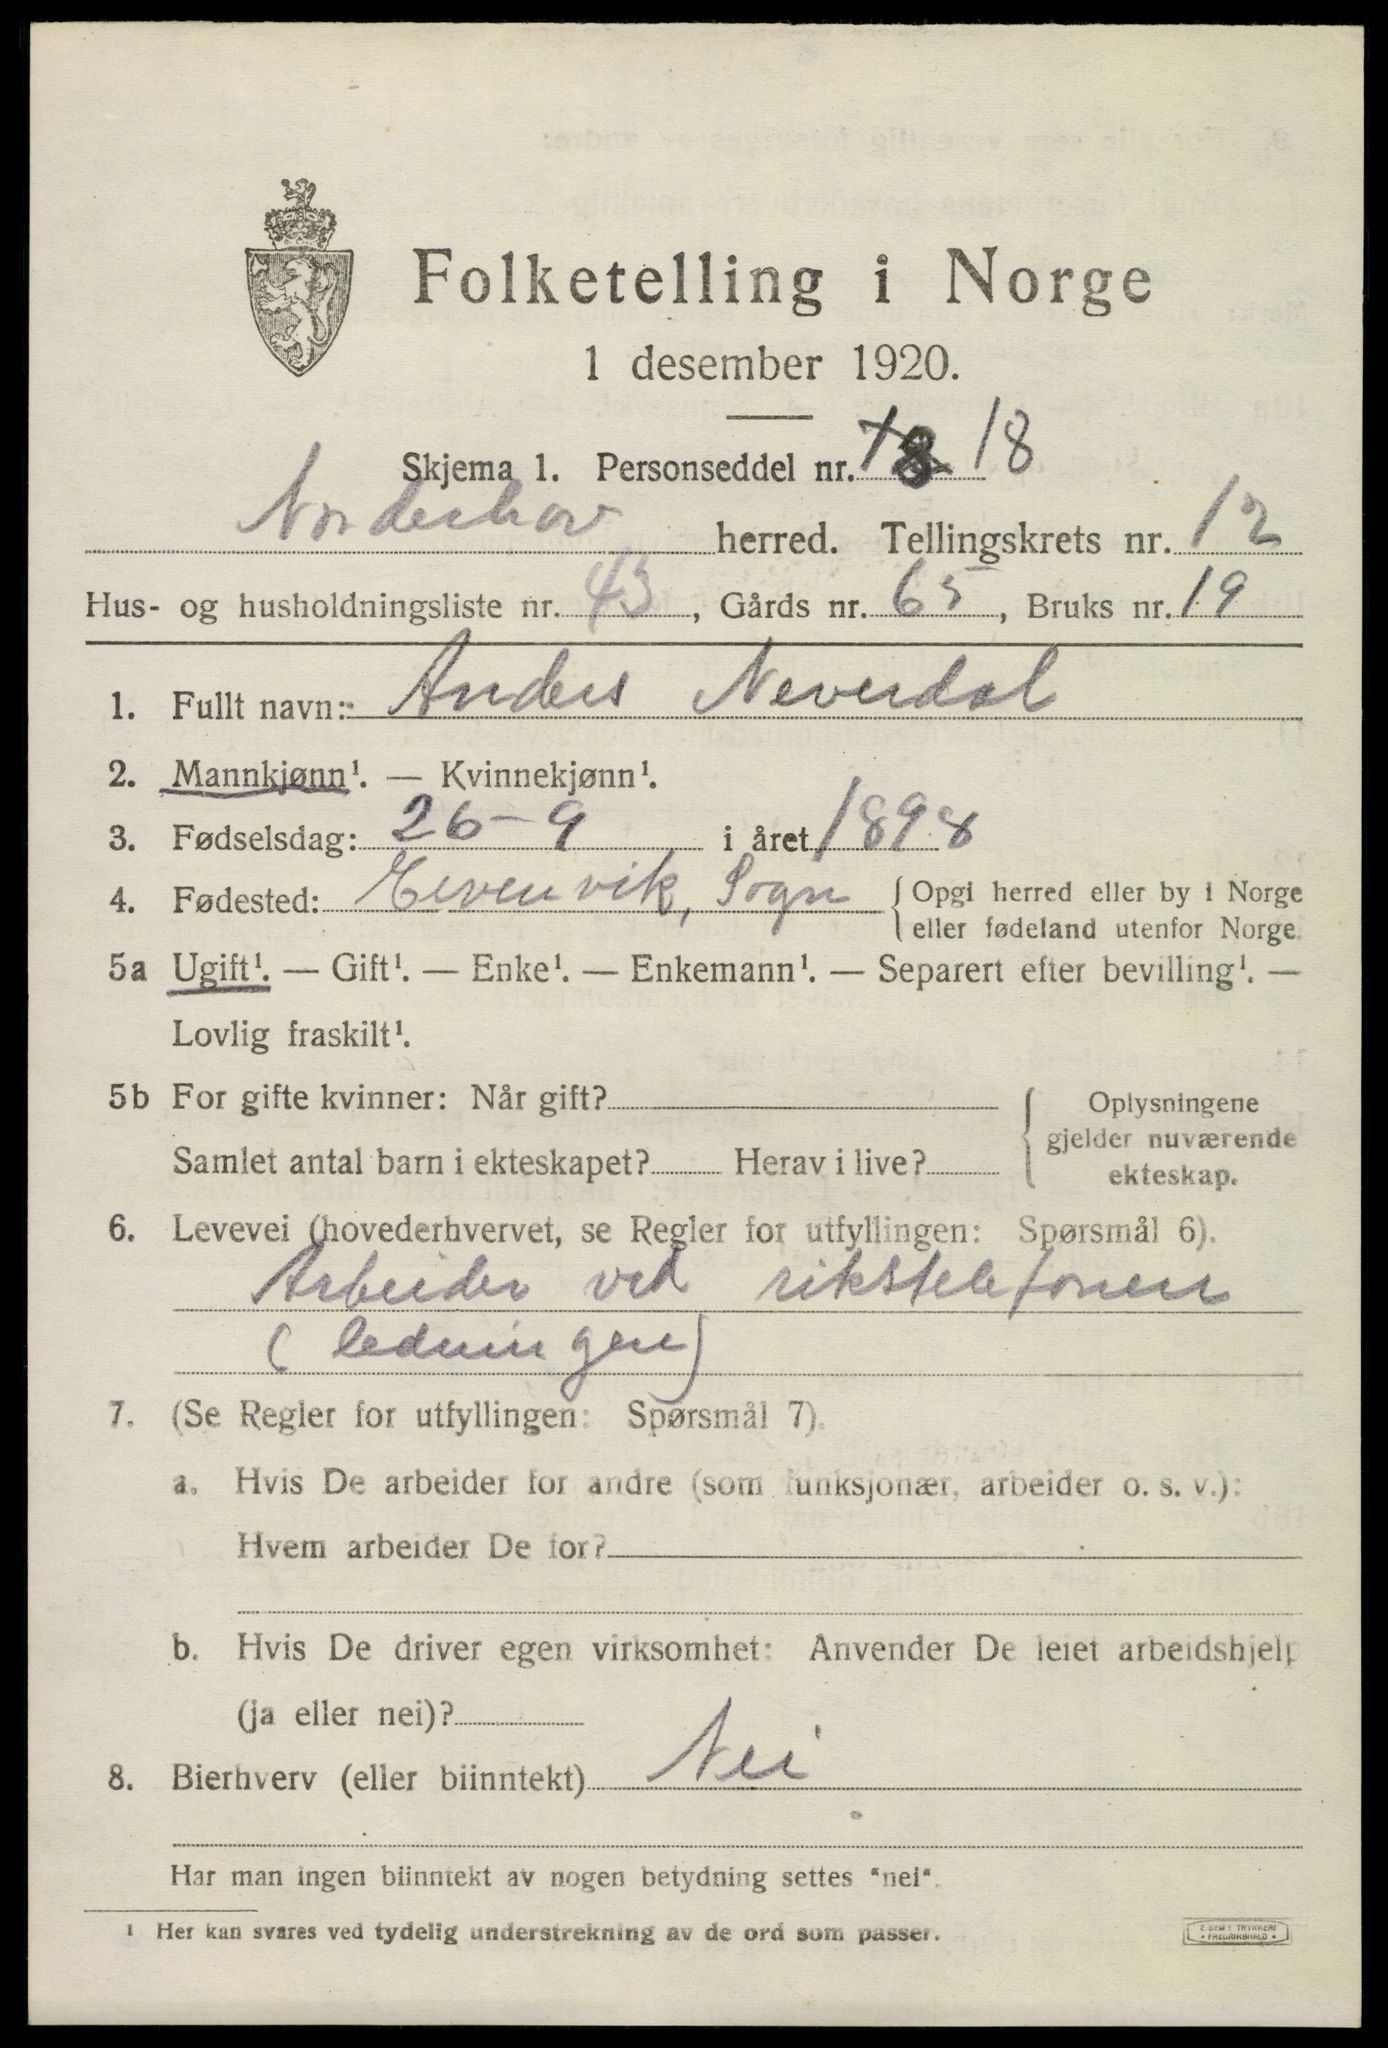 Folketelling i Norge
1 desember 1920.
Skjema 1. Personseddel nr. 18
Norderhov herred. Tellingskrets nr. 12
Hus- og husholdningsliste nr. 43, Gårds nr. 65, Bruks nr. 19
1. Fullt navn: Anders Neverdal
2. Mannkjønn¹. — Kvinnekjønn¹.
3. Fødselsdag: 26-9 i året 1898
4. Fødested: Eivenvik, Sogn { Opgi herred eller by i Norge
eller fødeland utenfor Norge.
5a Ugift¹. — Gift¹. — Enke¹. — Enkemann¹. — Separert efter bevilling¹. —
Lovlig fraskilt¹.
5b For gifte kvinner: Når gift?
Samlet antal barn i ekteskapet? Herav i live?
Oplysningene
gjelder nuværende
ekteskap.
6. Levevei (hovederhvervet, se Regler for utfyllingen: Spørsmål 6).
Arbeider ved rikstelefonen
(ledningen)
7. (Se Regler for utfyllingen: Spørsmål 7).
a. Hvis De arbeider for andre (som funksjonær, arbeider o. s. v.):
Hvem arbeider De for?
b. Hvis De driver egen virksomhet: Anvender De leiet arbeidshjelp
(ja eller nei)?
8. Bierhverv (eller biinntekt) Nei
Har man ingen biinntekt av nogen betydning settes "nei".
¹ Her kan svares ved tydelig understrekning av de ord som passer.